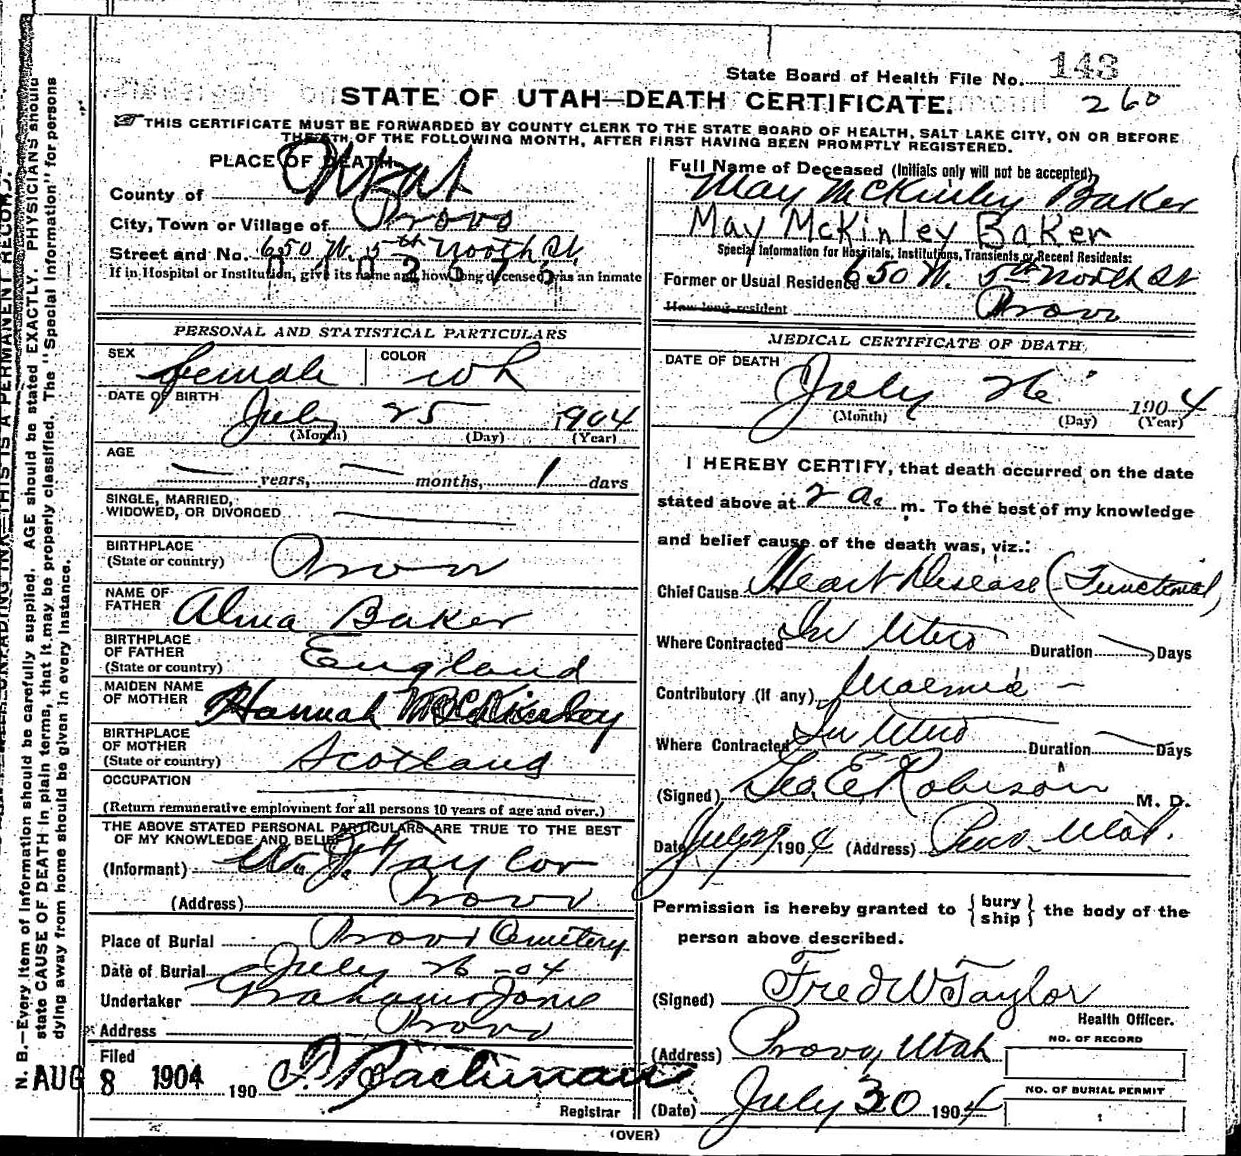 State Board of Health File No. 143
STATE OF UTAH—DEATH CERTIFICATE. 260
THIS CERTIFICATE MUST BE FORWARDED BY COUNTY CLERK TO THE STATE BOARD OF HEALTH, SALT LAKE CITY, ON OR BEFORE
THE 5TH OF THE FOLLOWING MONTH, AFTER FIRST HAVING BEEN PROMPTLY REGISTERED.
PLACE OF DEATH
County of Utah
City, Town or Village of Provo
Street and No. 650 W. 5th North St.
If in Hospital or Institution, give its name and how long deceased was an inmate
PERSONAL AND STATISTICAL PARTICULARS
SEX female COLOR wh
DATE OF BIRTH July 25 1904
(Month) (Day) (Year)
AGE
— years, — months, 1 days
SINGLE, MARRIED,
WIDOWED, OR DIVORCED
BIRTHPLACE
(State or country) Provo
NAME OF
FATHER Alma Baker
BIRTHPLACE
OF FATHER
(State or country) England
MAIDEN NAME
OF MOTHER Hannah McKinley
BIRTHPLACE
OF MOTHER
(State or country) Scotland
OCCUPATION
(Return remunerative employment for all persons 10 years of age and over.)
THE ABOVE STATED PERSONAL PARTICULARS ARE TRUE TO THE BEST
OF MY KNOWLEDGE AND BELIEF
(Informant) Wm. J. Taylor
(Address) Provo
Place of Burial Provo Cemetery
Date of Burial July 26 -04
Undertaker Graham Jones
Address Provo
Filed
AUG 8 1904 190 Bachman
Registrar
Full Name of Deceased (Initials only will not be accepted)
May McKinley Baker
May McKinley Baker
Special Information for Hospitals, Institutions, Transients or Recent Residents:
Former or Usual Residence 650 W. 5th North St
How long resident Provo
MEDICAL CERTIFICATE OF DEATH
DATE OF DEATH
July 26 1904
(Month) (Day) (Year)
I HEREBY CERTIFY, that death occurred on the date
stated above at 2 a. m. To the best of my knowledge
and belief cause of the death was, viz.:
Chief Cause Heart Disease (Functional)
Where Contracted In Utero Duration — Days
Contributory (if any), Uraemia —
Where Contracted In Utero Duration — Days
(Signed) Geo E. Robison M. D.
Date July 29 1904 (Address) Provo Utah.
Permission is hereby granted to {bury
ship} the body of the
person above described.
(Signed) Fred W Taylor
Health Officer.
(Address) Provo, Utah
(Date) July 30 1904
NO. OF RECORD
NO. OF BURIAL PERMIT
(OVER)
N. B.—Every item of information should be carefully supplied. AGE should be stated EXACTLY. PHYSICIANS should
state CAUSE OF DEATH in plain terms, that it may be properly classified. The "Special Information" for persons
dying away from home should be given in every instance.
THIS IS A PERMANENT RECORD.